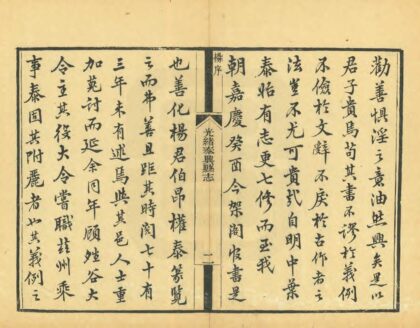 勸善懼淫之意油然興矣是以
君子貴焉苟其書不謬於義例
不儉於文辭不戾於古作者之
法豈不尤可貴哉自明中葉
泰始有志更七修而至我
朝嘉慶癸酉今架閣官書是
序
光緒泰興縣志
一
也善化楊君伯昂權泰篆覽
之而弗善且距其時閱七十有
三年未有述焉與其邑人士重
加蒐討而延余同年顧谷大
令主其役大令嘗職州乘
事泰固其附麗者如其義例之